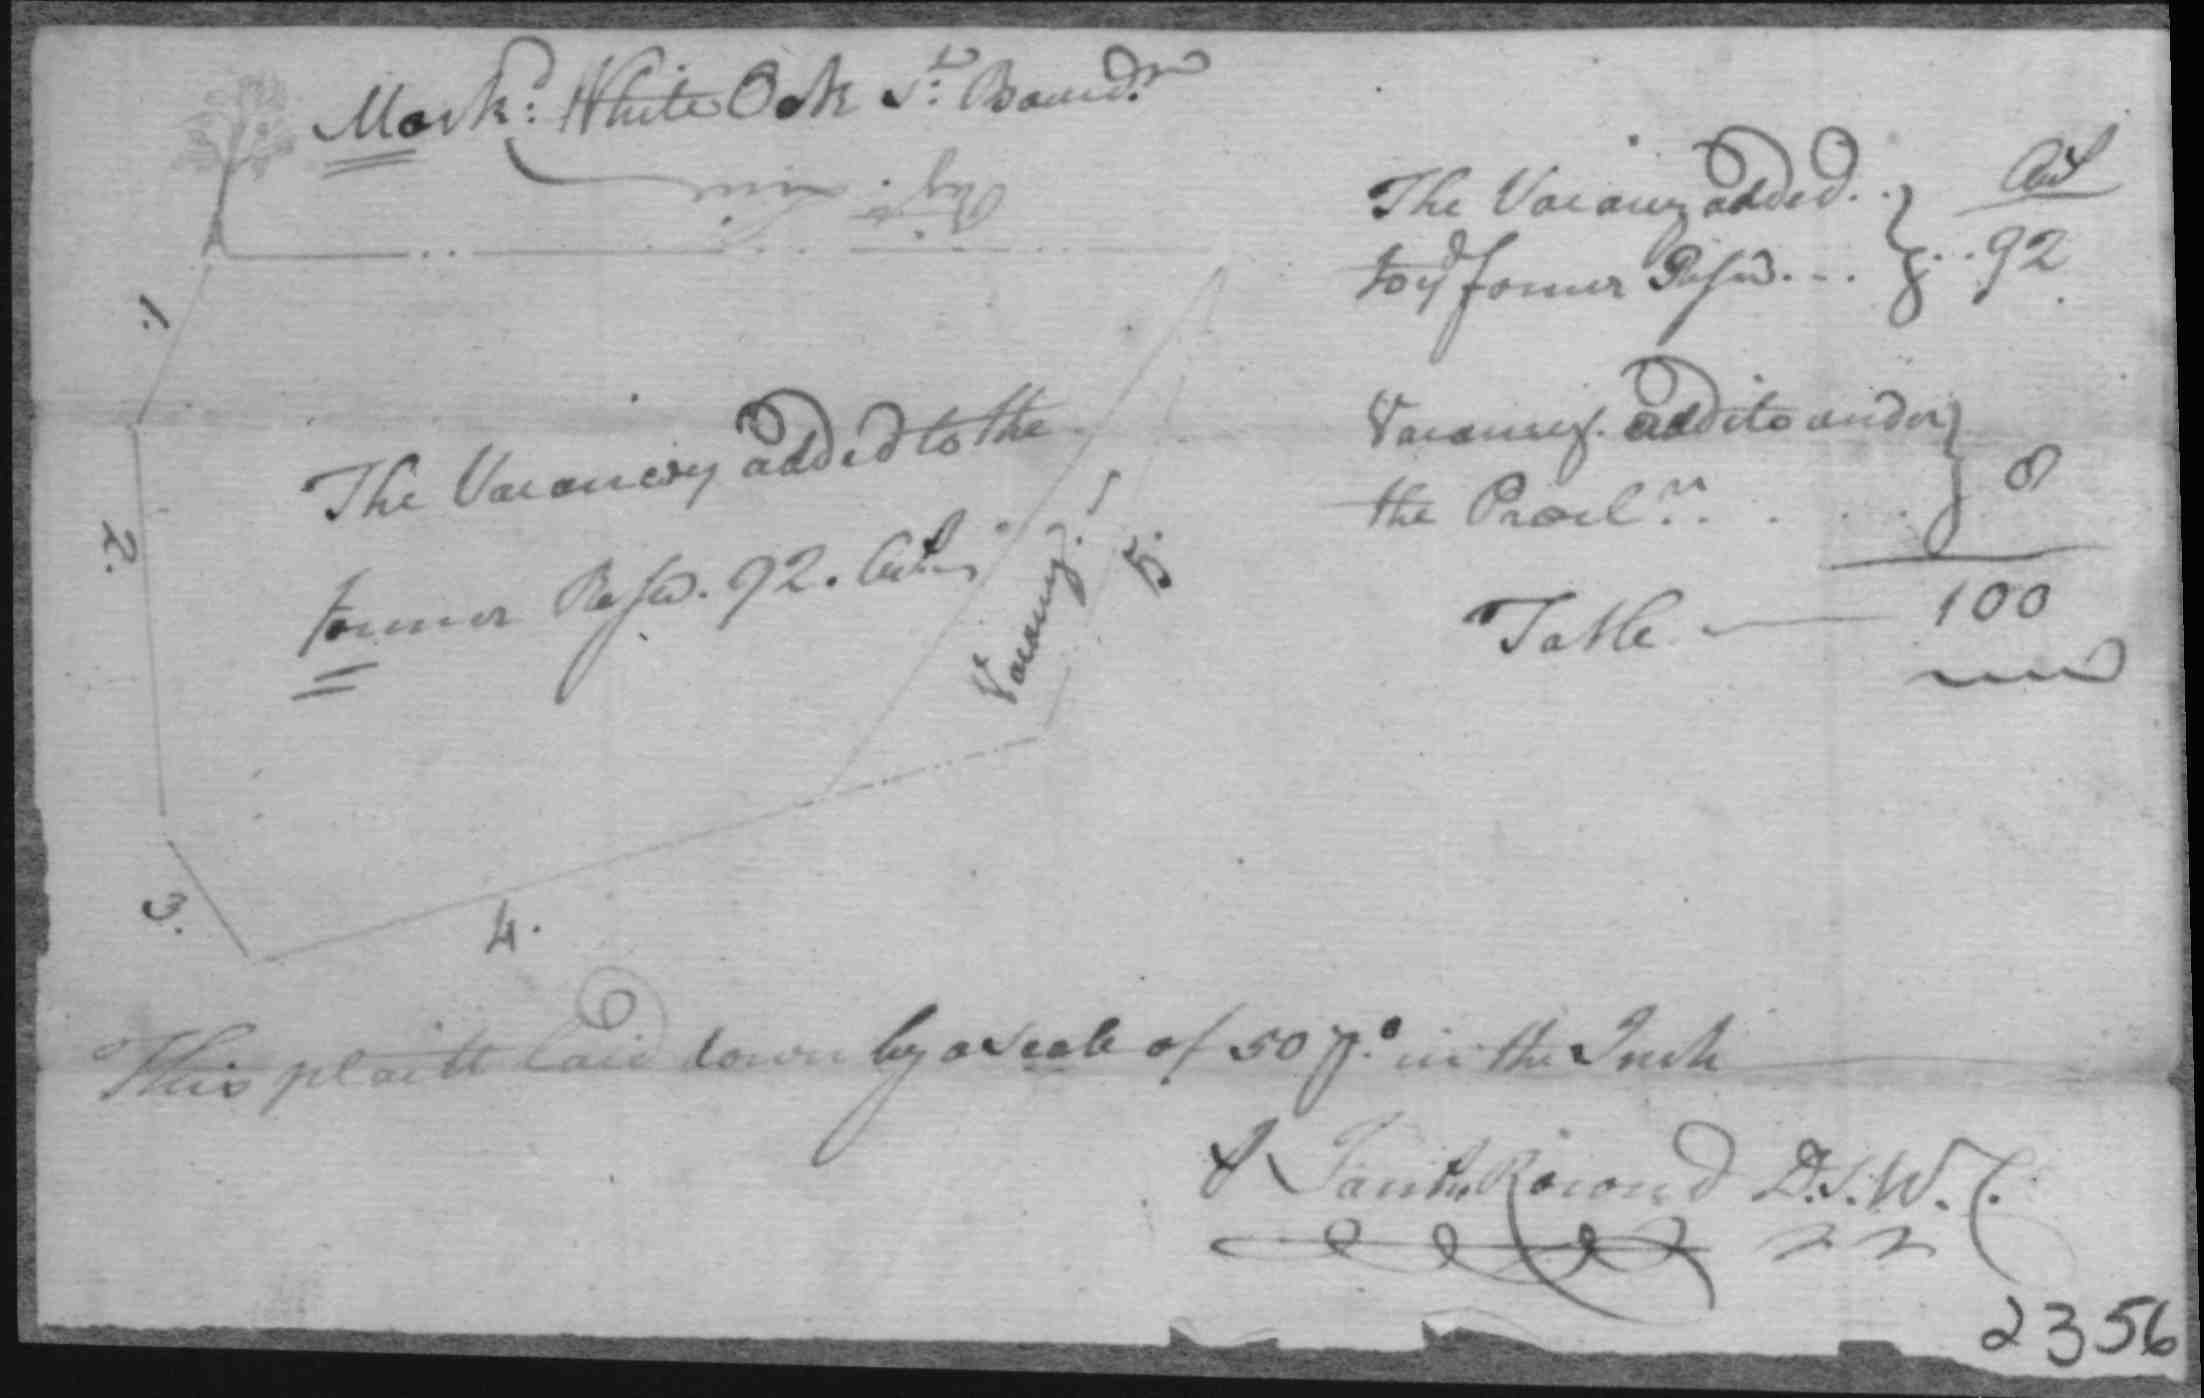 Mark: White Oak st. Bound.r
1.
2.
3.
4.
5.
The Vacancy added to the
former Resu. 92. Acres
Vacancy.
The Vacancy added
to ye former Resu. 92
Vacancy. added to under
the Procl.n 8
Totle 100
This platt laid down by a Scale of 50 p.s in the Inch
Rownd D.S.W.C.
2356